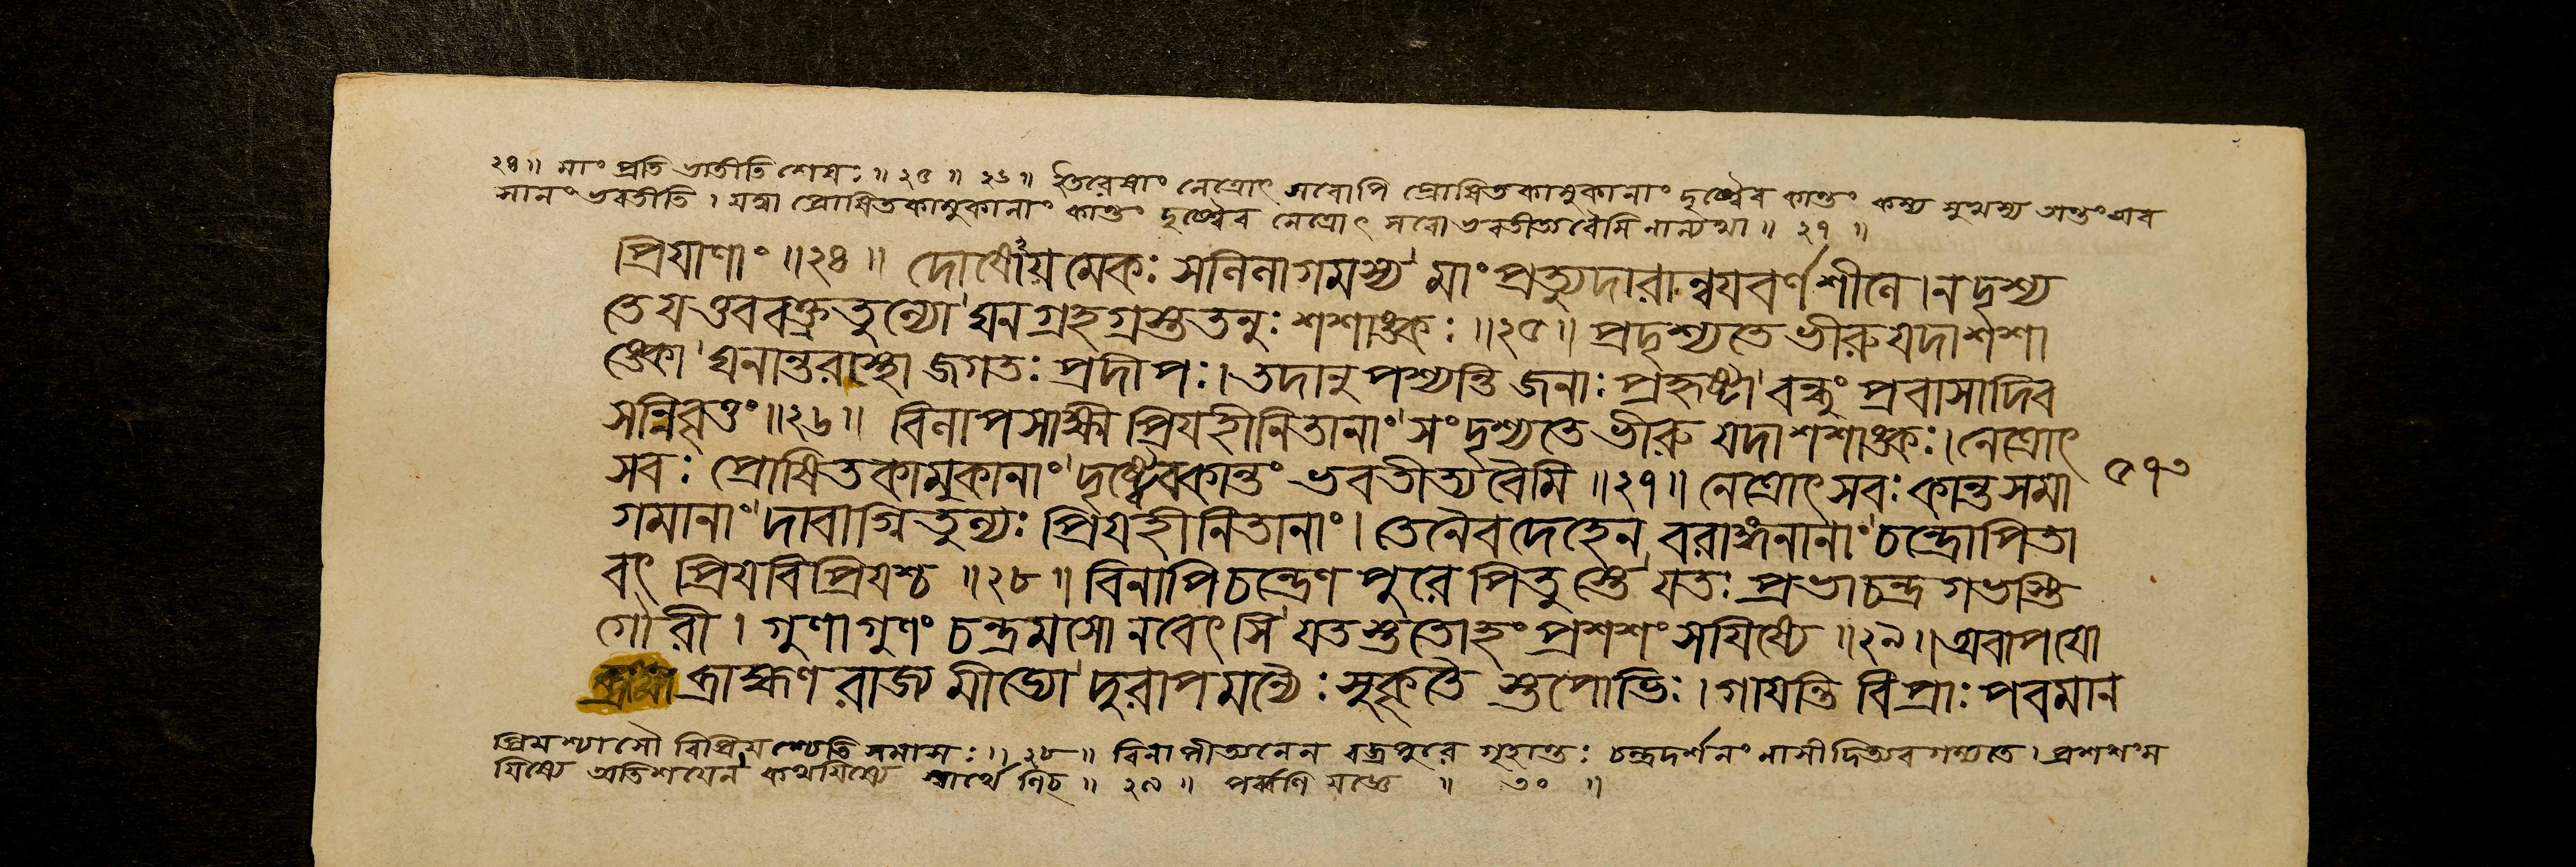 ২৪॥ মাং প্রতি ভাতীতি শেষঃ ॥ ২৫ ॥ ২৬ ॥ ইতরেষাং নেত্রোৎসবোপি প্রোষিতকামুকানাং দৃষ্ট্বৈব কান্তং কস্য মুখস্য অন্তং এব
মানং ভবতীতি । যদ্বা প্রোষিতকামুকানাং কান্তং দৃষ্ট্বৈব নেত্রোৎসবো ভবতীত্যবৈমি নান্যথা ॥ ২৭ ॥
প্রিযাণাং ॥২৪॥ দোষোয়মেকঃ সলিলাগমস্য মাং প্রত্যুদারান্বযবর্ণশীলে । ন দৃশ্য
তে যত্তববক্ত্রতুল্যো ঘনগ্রহগ্রস্ততনুঃ শশাঙ্কঃ ॥২৫॥ প্রদৃশ্যতে ভীরু যদা শশা
ঙ্কো ঘনান্তরাস্থো জগতঃ প্রদীপঃ । তদানুপশ্যন্তি জনাঃ প্রহৃষ্টা বন্ধুং প্রবাসাদিব
সন্নিবৃত্তং ॥২৬॥ বিলাপসাক্ষী প্রিযহীনিতানাং সংদৃশ্যতে ভীরু যদা শশাঙ্কঃ । নেত্রোৎ
সবঃ প্রোষিতকামুকানাং দৃষ্ট্বৈবকান্তং ভবতীত্যবৈমি ॥২৭॥ নেত্রোৎসবঃ কান্তসমা
৫৭৩
গমানাং দাবাগ্নিতুল্যঃ প্রিযহীনিতানাং । তেনৈব দেহেন বরাঙ্গনানাং চন্দ্রোপি তা
বৎ প্রিযবিপ্রিযশ্চ ॥২৮॥ বিনাপি চন্দ্রেণ পুরে পিতুস্তে যতঃ প্রভা চন্দ্রগভস্তি
গৌরী । গুণাগুণং চন্দ্রমসো ন বেৎসি যতস্ততোহং প্রশশংসযিষ্যে ॥২৯॥ অবাপ যো
ব্রাহ্মণরাজ্যমীড্যো দুরাপমন্যৈঃ সুকৃতৈস্তপোভিঃ । গাযন্তি বিপ্রাঃ পবমান
প্রিযশ্চাসৌ বিপ্রিযশ্চেতি সমাসঃ ॥ ২৮ ॥ বিনাপীত্যনেন পুরে গৃহান্তঃ চন্দ্রদর্শনং নাসীদিত্যবগম্যতে । প্রশশংস
যিষ্যে অতিশযেন কথযিষ্যে স্বার্থে ণিচ্ ॥ ২৯ ॥ পর্ব্বণি যজ্ঞে ॥ ৩০ ॥